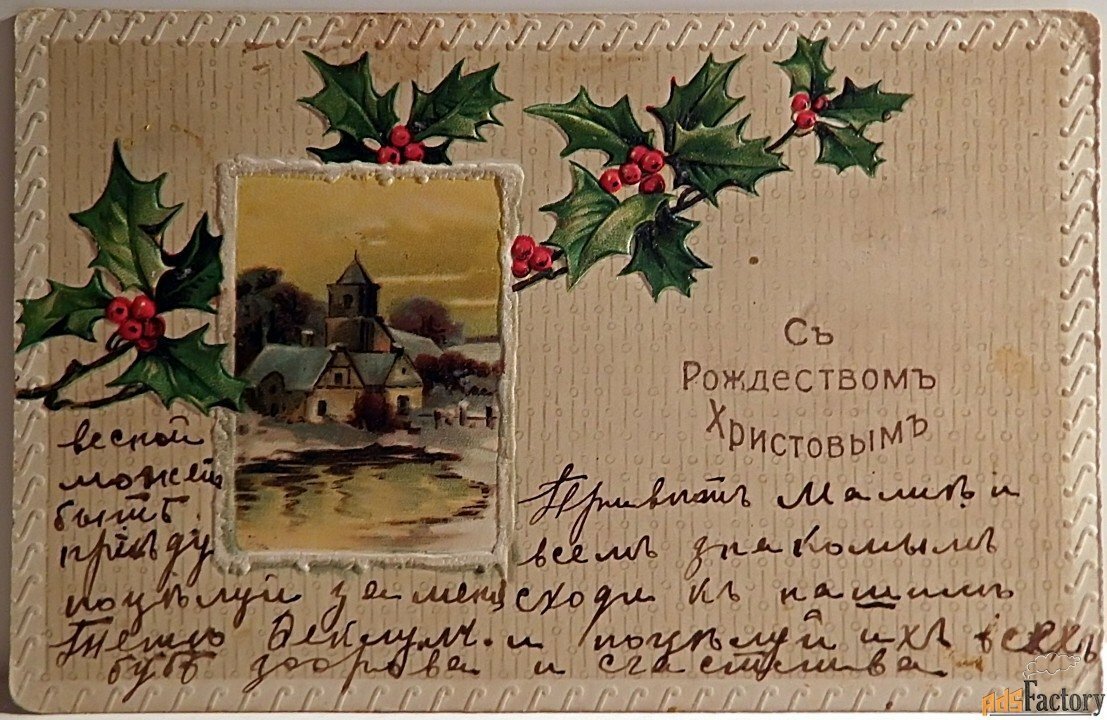 Съ
Рождествомъ
Христовымъ
весной
может
быть
приѣду
Привѣтъ Маликъ и
всемъ знакомымъ
поцѣлуй за меня сходи къ нашимъ
и поцѣлуй ихъ всехъ
будь здорова и счастлива
AdsFactory